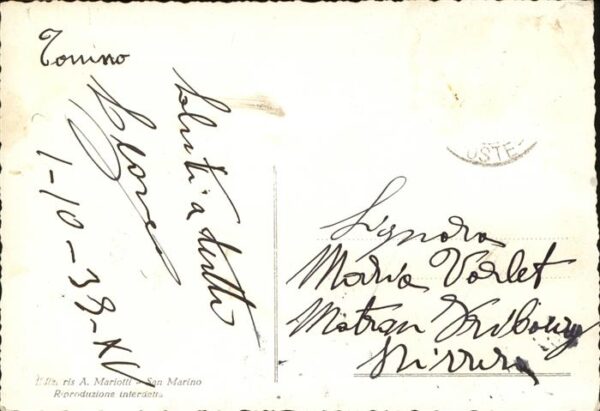 Tonino
Saluti a tutti
1-10-39-XV
Signora
Maria Vorlet
Matran Fribourg
Svizzera
Ediz. ris A. Mariotti - San Marino
Riproduzione interdetta
OSTE